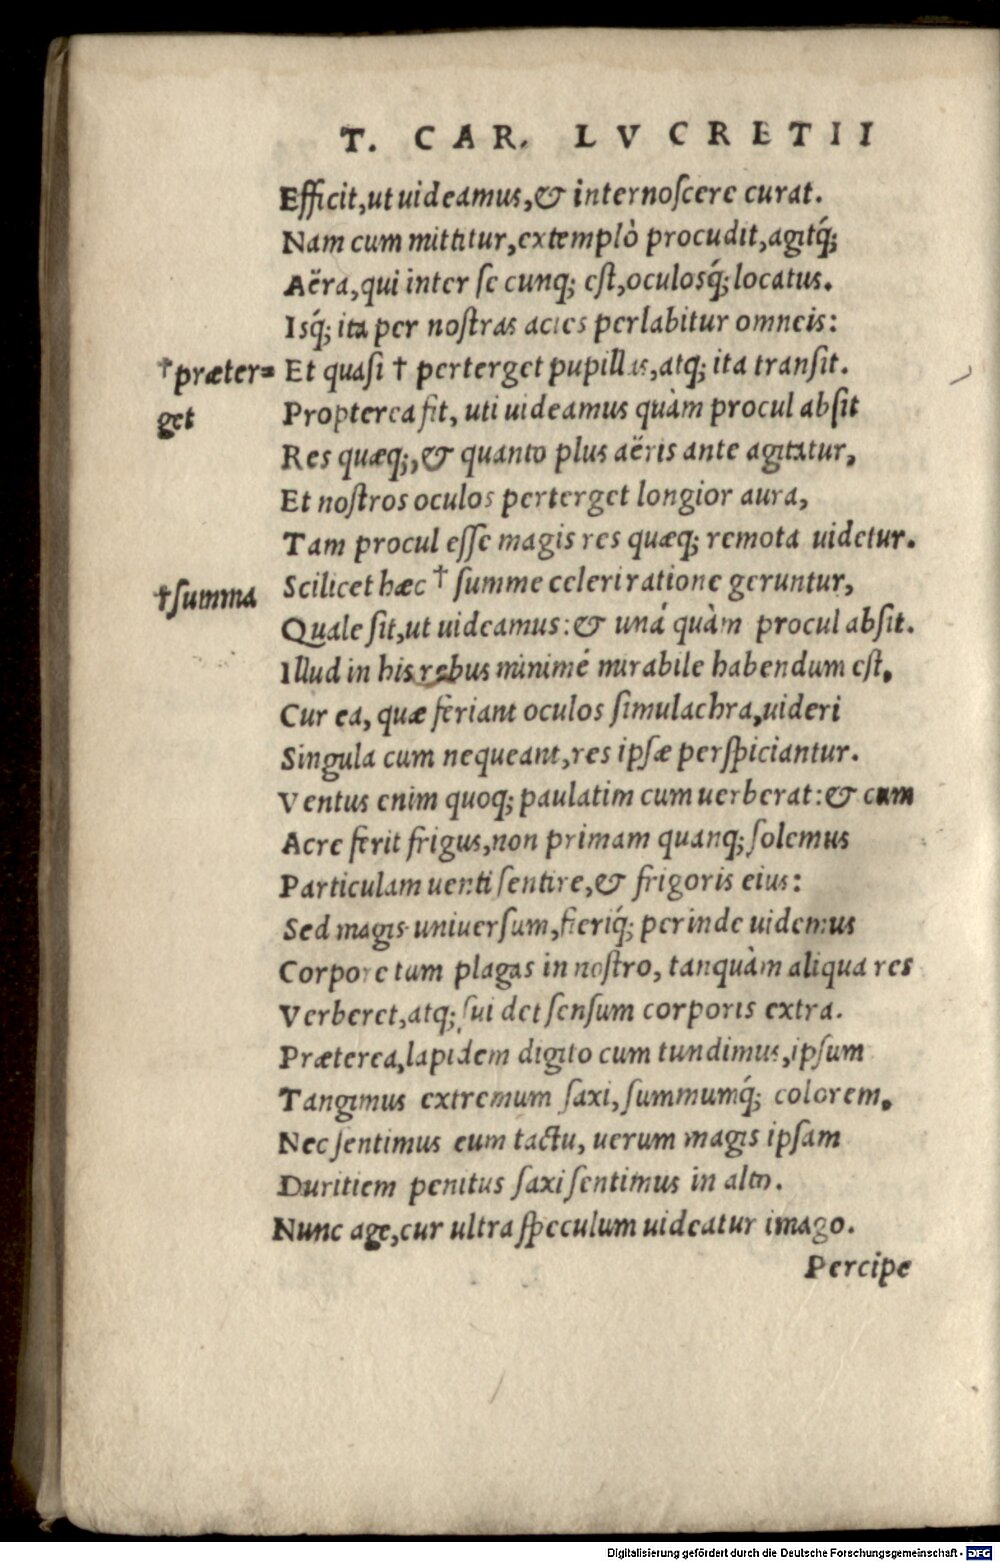 T. CAR. LVCRETII
Efficit, ut uideamus, & internoſcere curat.
Nam cum mittitur, extemplò procudit, agitq́;
Aëra, qui inter ſe cunq; eſt, oculosq́; locatus.
Isq́; ita per noſtras acies perlabitur omneis:
†præter= Et quaſi † perterget pupillas, atq; ita tranſit.
get Propterea fit, uti uideamus quàm procul abſit
Res quæq;, & quanto plus aëris ante agitatur,
Et noſtros oculos perterget longior aura,
Tam procul eſſe magis res quæq; remota uidetur.
†ſumma Scilicet hæc † ſumme celeri ratione geruntur,
Quale ſit, ut uideamus: & unâ quàm procul abſit.
Illud in his rebus minimé mirabile habendum eſt,
Cur ea, quæ feriant oculos ſimulachra, uideri
Singula cum nequeant, res ipſæ perſpiciantur.
Ventus enim quoq; paulatim cum uerberat: & cum
Acre ferit frigus, non primam quanq; ſolemus
Particulam uenti ſentire, & frigoris eius:
Sed magis uniuerſum, fieriq́; perinde uidemus
Corpore tum plagas in noſtro, tanquàm aliqua res
Verberet, atq; ſui det ſenſum corporis extra.
Præterea, lapidem digito cum tundimus, ipſum
Tangimus extremum ſaxi, ſummumq́; colorem,
Nec ſentimus eum tactu, uerum magis ipſam
Duritiem penitus ſaxi ſentimus in alto.
Nunc age, cur ultra ſpeculum uideatur imago.
Percipe
Digitalisierung gefördert durch die Deutsche Forschungsgemeinschaft - DFG